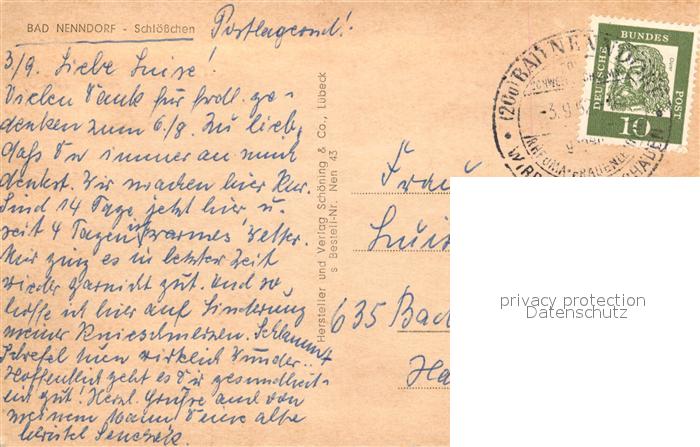 BAD NENNDORF - Schlößchen
Postlagernd!
3/9. Liebe Luise!
Vielen Dank für frdl. ge-
denken zum 6/8. Zu lieb,
daß Du immer an mich
denkst. Wir machen hier Kur.
Sind 14 Tage jetzt hier, u.
seit 4 Tagen ist warmes Wetter.
Mir ging es in letzter Zeit
wieder garnicht gut. Und so
hoffe ich hier auf Linderung
meiner Knieschmerzen. Schlamm +
Schwefel tun wirklich Wunder.
Hoffentlich geht es Dir gesundheit-
lich gut! Herzl. Grüße auch von
meinem Mann Deine alte
Christel
Hersteller und Verlag Schöning & Co., Lübeck
s Bestell-Nr. Nen 43
DEUTSCHE BUNDESPOST
10
(20a) BAD NENNDORF
-3.9.62
Frau
Luis
635 Bad
Ha
privacy protection
Datenschutz